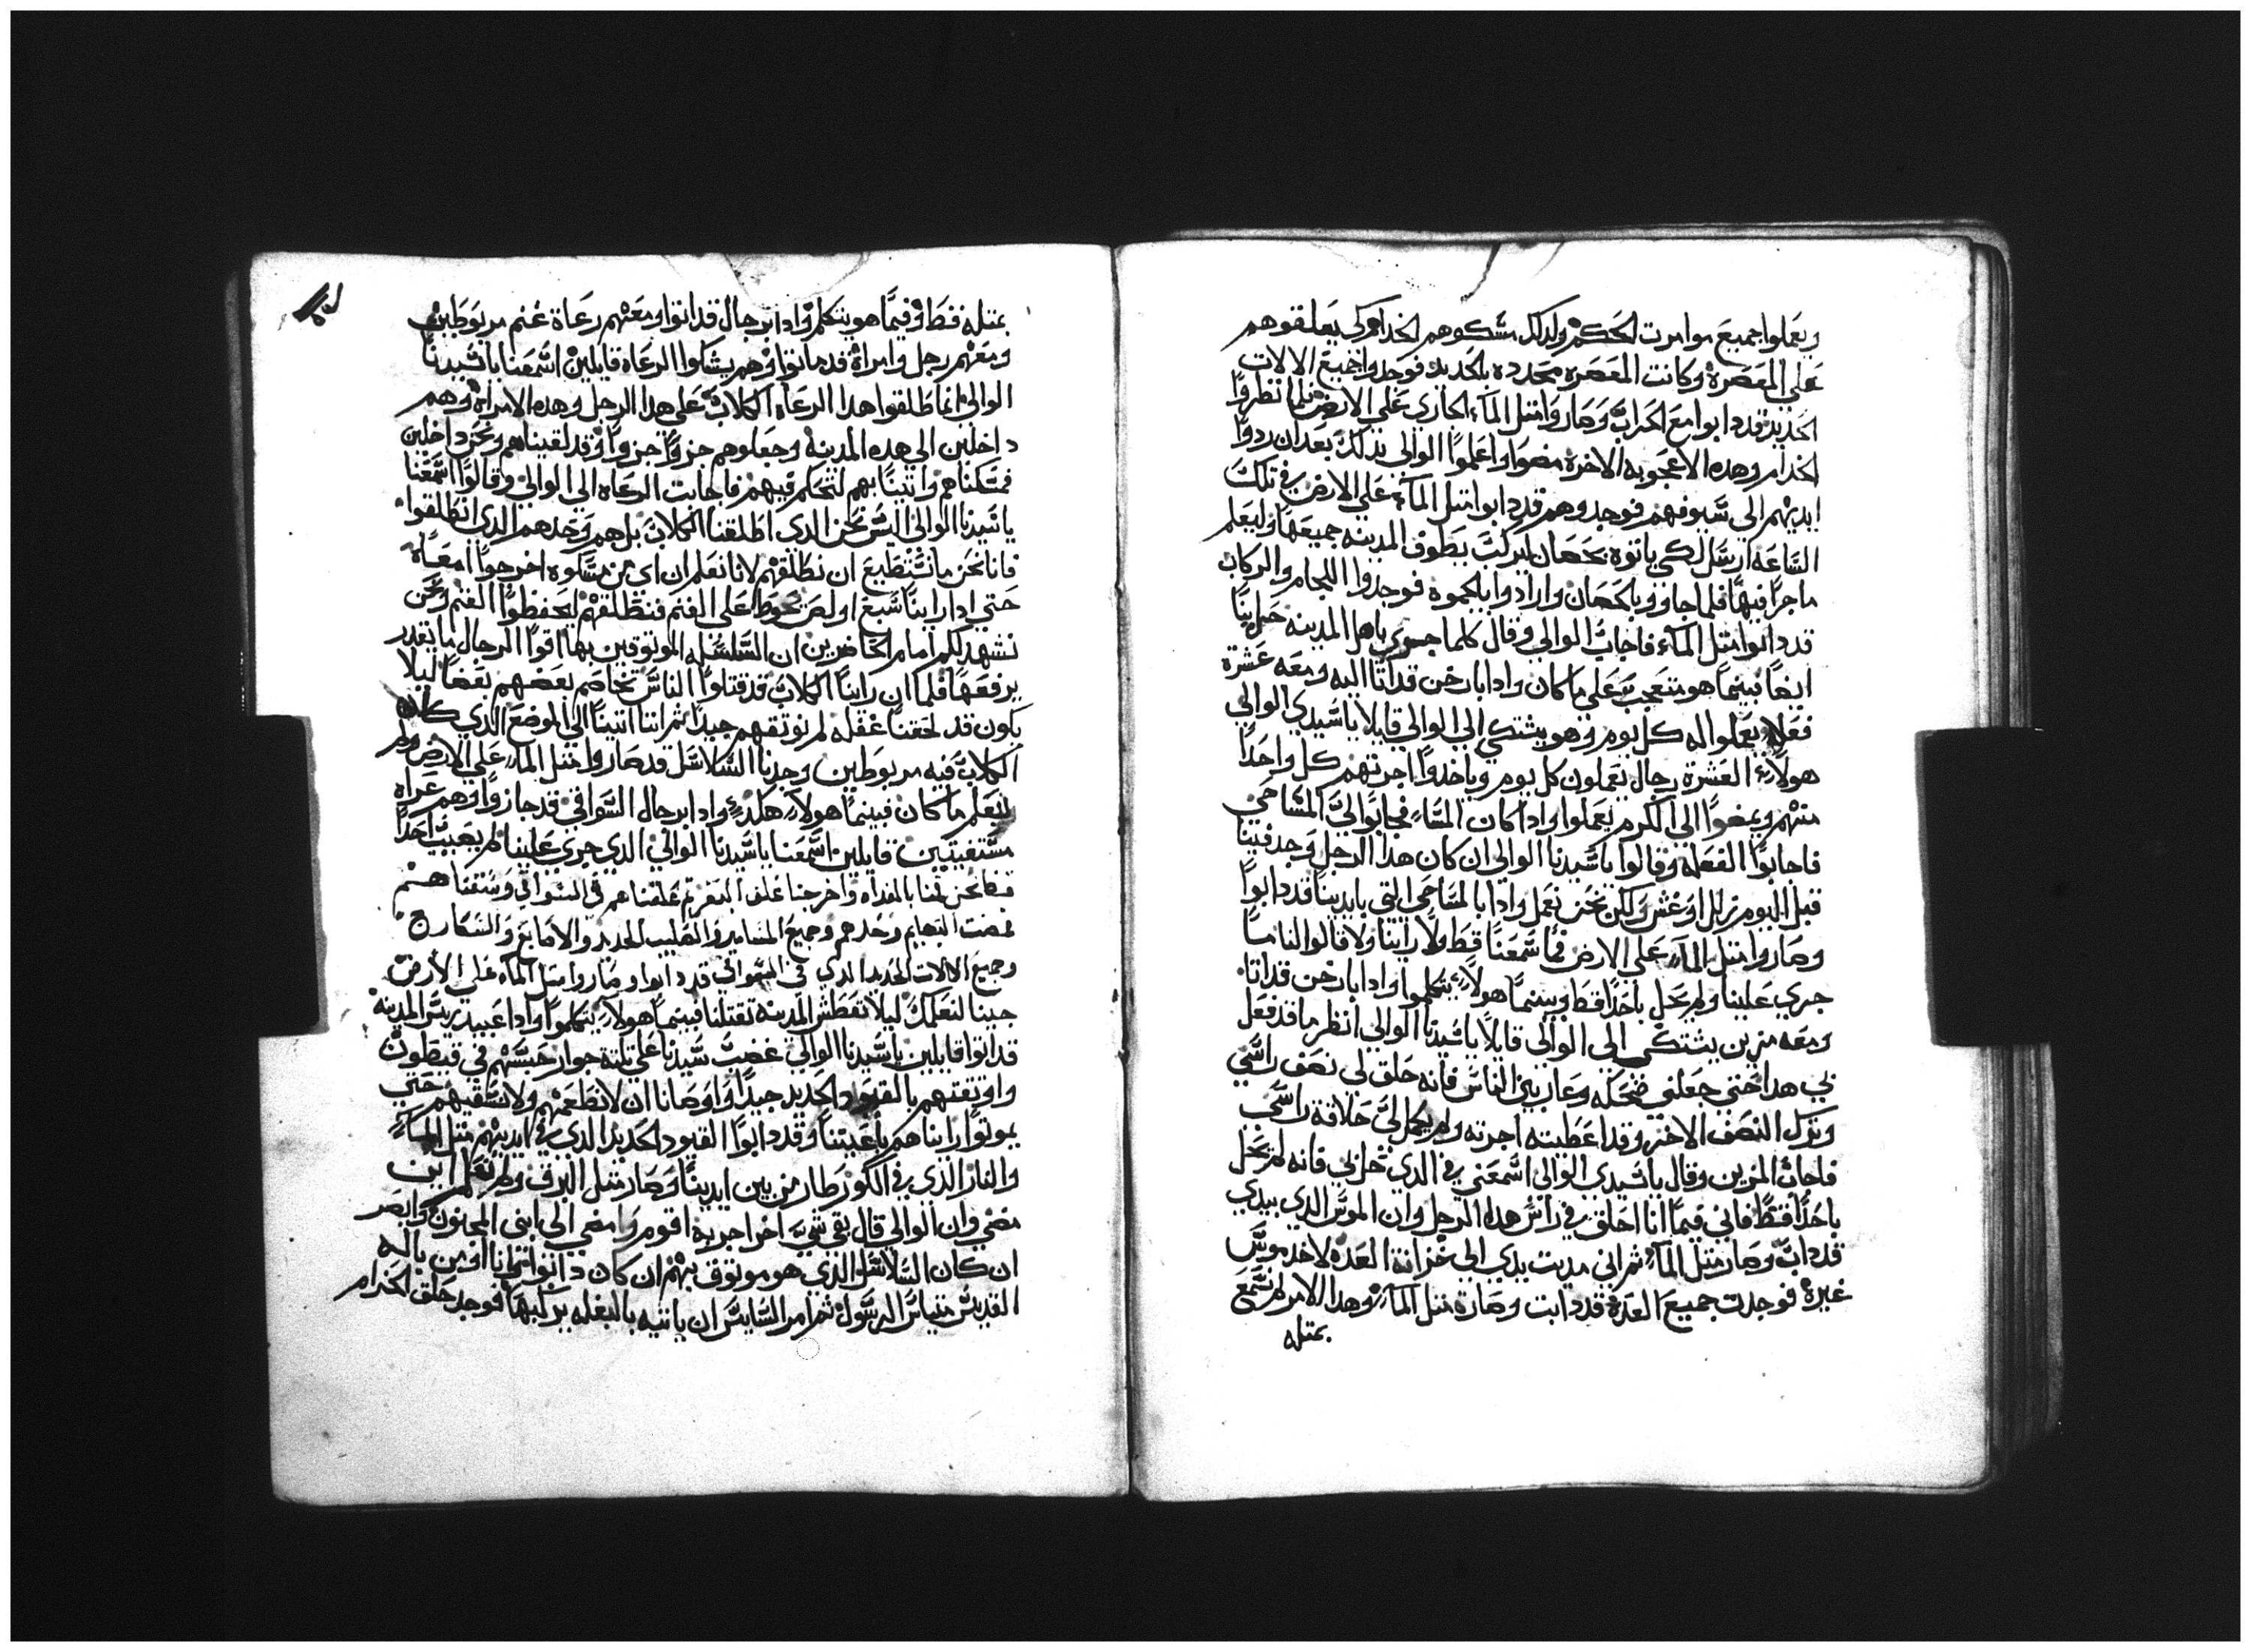 ويعملوا جميع موامرت الحكم ولدلك مسكوهم الخدام لكي يعلقوهم
علي المعصرة وكانت المعصره محدده بالحديد فوجدوا جميع الالات
الحديد قد دابوا مع الحراب وصاروا متل الماء الجاري علي الارض فلما نظروا
الخدام وهده الاعجوبه الاخرة مضوا واعلموا الوالي بدلك بعد ان ردوا
ايديهم الي سيوفهم فوجدوهم قد دابوا متل الماء علي الارض في تلك
الساعه ارسل لكي ياتوه بحصان ليركب يطوف المدينه جميعها وليعلم
ماجرا فيها فلما جاووا بالحصان وارادوا يلجموه فوجدوا اللجام والركاب
قد دابوا متل الماء فاجاب الوالي وقال كلما جري باهل المدينه حل بنا
ايضا فبينما هو متعجب علي ما كان وادا بارخن قد اتا اليه ومعه عشرة
فعله يعملوا له كل يوم وهو يشتكي الي الوالي قايلا ياسيدي الوالي
هولاء العشرة رجال يعملون كل يوم وياخدوا اجرتهم كل واحدا
منهم ويمضوا الي الكرم يعملوا وادا كان المساء فجابوا لي المساحي
فاجابوا الفعلة وقالوا ياسيدنا الوالي ان كان هدا الرجل وجد فينا
قبل اليوم زلل او غش ولكن نحن نعمل وادا بالمساحي التي بايدينا قد دابوا
وصاروا متل الماء علي الارض فما سمعنا قط ولا راينا ولا قالوا لنا ما
جري علينا ولم يحل باحدا قط وبينما هولاء يتكلموا وادا بارخن قد اتا
ومعه مزين يشتكي الي الوالي قايلا ياسيدنا الوالي انظر ما قد فعل
بي هدا حتي جعلني ضحكه وعار بين الناس فانه حلق لي نصف راسي
وترك النصف الاخر وقد اعطيته اجرته ولم يكمل لي حلاقة راسي
فاجاب المزين وقال ياسيدي الوالي اسمعني في الدي حل بي فانه لم يحل
باحدا قط فاني فيما انا احلق في راس هدا الرجل وان الموس الدي بيدي
قد داب وصار متل الماء ثم اني مديت يدي الي خزانة العده لاخد موس
غيرة فوجدت جميع العدة قد دابت وصارة متل الماء وهدا الامر لم نسمع
بمتله
بمتله قط وفيما هو يتكلم وادا برجال قد اتوا ومعهم رعاة غنم مربوطين
ومعهم رجل وامراة قد ماتوا وهم يشكوا الرعاه قايلين اسمعنا ياسيدنا
الوالي انما طلقوا هدا الرعاه الكلاب علي هدا الرجل وهده الامراة وهم
داخلين الي هده المدينه وجعلوهم جزوا جزوا وقد لقيناهم ونحن داخلين
فمسكناهم واتينا بهم لتحكم فيهم فاجابت الرعاه الي الوالي وقالوا اسمعنا
ياسيدنا الوالي ليس نحن الدي اطلقنا الكلاب بل هم وحدهم الدي انطلقوا
فانا نحن ما نستطيع ان نطلقهم لانا نعلم ان اي من مسكوه اخرجوا امعاه
حتي ادا راينا سبع او لص يحوط علي الغنم فنطلقهم ليحفظوا الغنم ونحن
نشهد لكم امام الحاضرين ان السلسله الموتوقين بها اقوا الرجال ما يقدر
يرفعها فلما ان راينا الكلاب قد قتلوا الناس تخاصم بعضهم بعضا ليلا
يكون قد لحقتنا غفله لم نوتقهم جيدا ثم اننا اتينا الي الموضع الدي كانت
الكلاب فيه مربوطين وجدنا السلاسل قد صاروا متل الماء علي الارض ولم
نعلم ما كان فبينما هولاء هكدي وادا برجال السواقي قد جازوا وهم عراه
مستغيتين قايلين اسمعنا ياسيدنا الوالي الدي جري علينا لم يصيب احدا
فكنا نحن قمنا بالغداه واخرجنا علف البقر ثم علقناهم في السواقي وسقناهم
فمضت البهايم وحدهم وجميع المسامير والصليب الحديد والاصابع والسكارج
وجميع الالات الحديد الدي في السواقي قد دابوا وصاروا متل الماء علي الارض
جينا لنعلمك ليلا تعطش المدينه تقتلنا فبينما هولاء يتكلموا وادا عبيد ريس المدينه
قد اتوا قايلين ياسيدنا الوالي غضب سيدنا علي تلتة جوار حبسهم في قيطون
واوتقهم بالقيود الحديد جيدا واوصانا ان لا نطعمهم ولا نسقيهم حتي
يموتوا رايناهم باعيننا وقد دابوا القيود الحديد الدي في ايديهم متل الماء
والنار الذي في الكور طار من بين ايدينا وصار متل البرق ولم نعلم اين
مضي وان الوالي قال بقي شيء اخر اجربه اقوم وامضي الي ابني المجنون وابصر
ان كان السلاسل الذي هو موتوق بهم ان كان دابوا فانا اومن باله
القديس متياس الرسول ثم امر السايس ان ياتيه بالبغله يركبها فوجد حلق الحزام